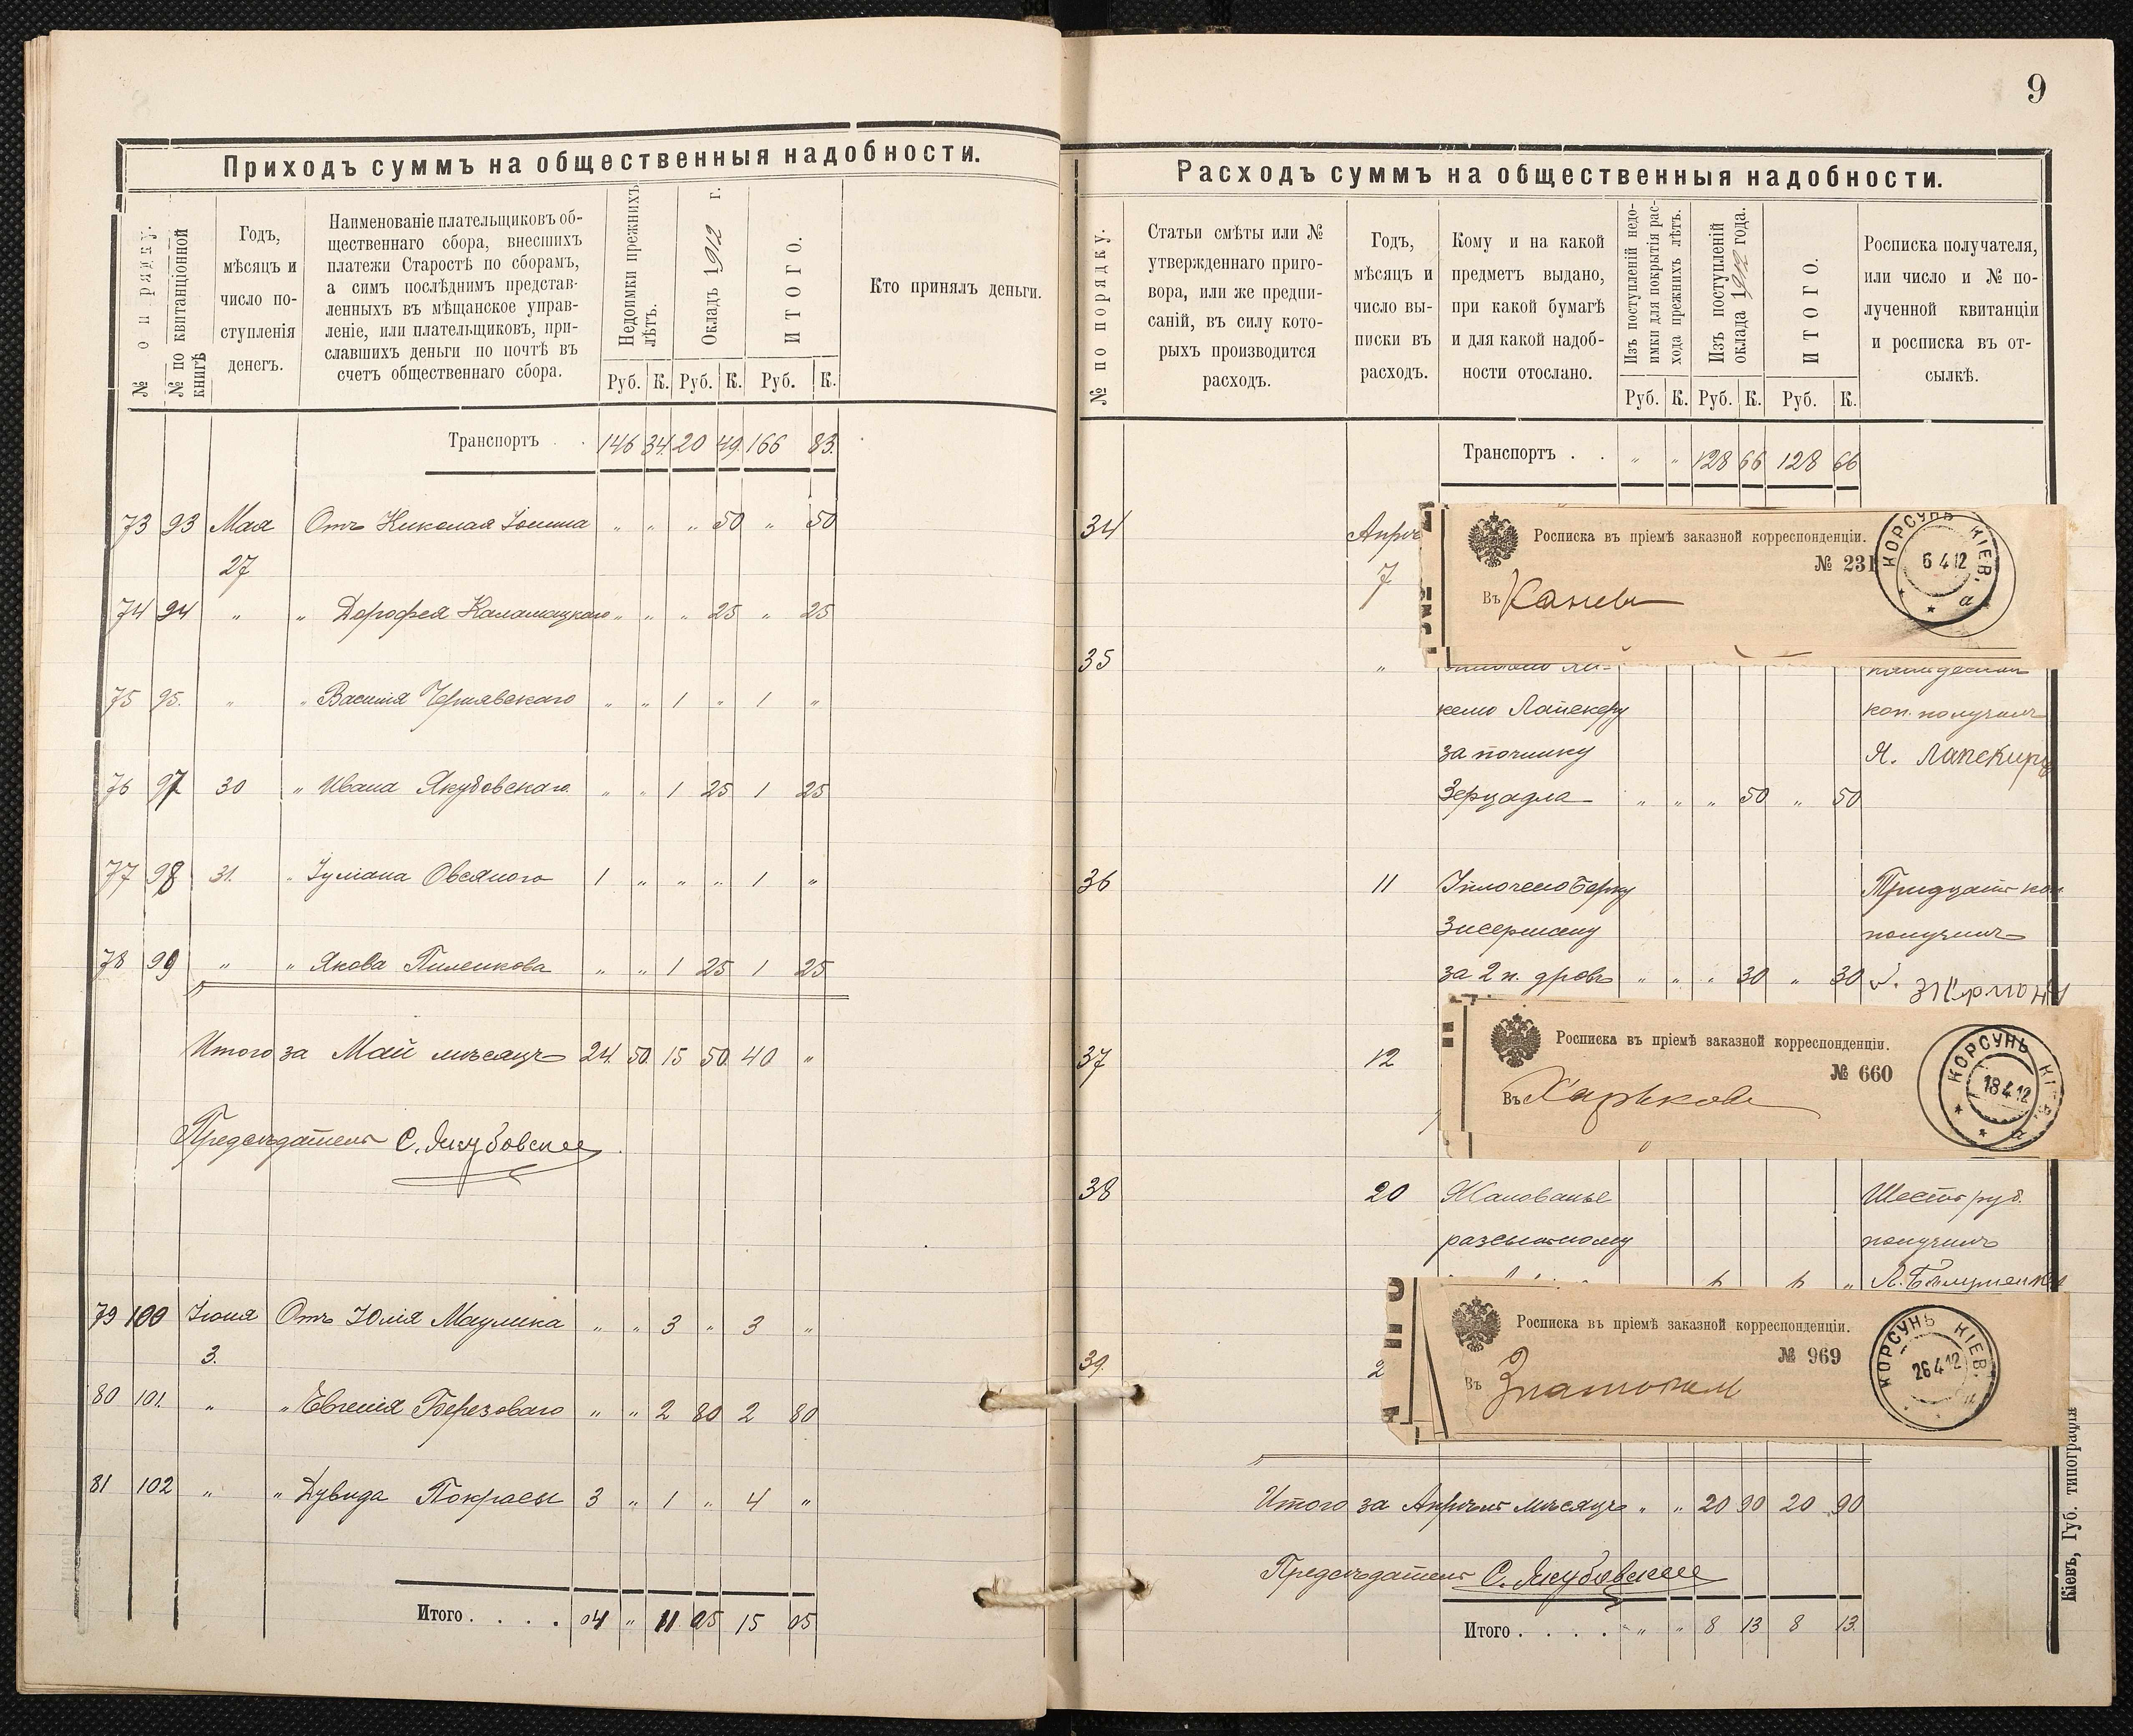 Приходъ суммъ на общественныя надобности.
№ по рядку.
№ по квитанціонной книгѣ
Годъ,
мѣсяцъ и
число по-
ступленія
денегъ.
Наименованіе плательщиковъ об-
щественнаго сбора, внесшихъ
платежи Старостѣ по сборамъ,
а симъ послѣднимъ представ-
ленныхъ въ мѣщанское управ-
леніе, или плательщиковъ, при-
славшихъ деньги по почтѣ въ
счетъ общественнаго сбора.
Недоимки прежнихъ
лѣтъ.
Окладъ 1912 г.
ИТОГО.
Руб. К. Руб. К. Руб. К.
Кто принялъ деньги.
Транспортъ . . 146 34. 20 49. 166 83.
73 93 Мая Отъ Николая „ „ „ 50 „ 50
27
74 94 „ „ Дорофея „ „ „ 25 „ 25
75 95. „ „ Василія Чернявскаго „ „ 1 „ 1 „
76 97 30 „ Ивана Якубовскаго „ „ 1 25 1 25
77 98 31. „ Іуліана Овсяного 1 „ „ „ 1 „
78 99 „ „ Якова Пиленкова „ „ 1 25 1 25
Итого за Май мѣсяцъ 24. 50. 15 50. 40 „
Предсѣдатель С. Якубовскій
79 100 Іюня Отъ Юлія Маулика „ „ 3 „ 3 „
3.
80 101. „ „ Евгенія Березоваго „ „ 2 80 2 80
81 102 „ „ Дувида Покрасы 3 „ 1 „ 4 „
Итого . . . . 04 „ 11 05 15 05
9
Расходъ суммъ на общественныя надобности.
№ по порядку.
Статьи смѣты или №
утвержденнаго приго-
вора, или же предпи-
саній, въ силу кото-
рыхъ производится
расходъ.
Годъ,
мѣсяцъ и
число вы-
писки въ
расходъ.
Кому и на какой
предметъ выдано,
при какой бумагѣ
и для какой надоб-
ности отослано.
Изъ поступленій недо-
имки для покрытія рас-
хода прежнихъ лѣтъ.
Изъ поступленій
оклада 1912 года.
ИТОГО.
Руб. К. Руб. К. Руб. К.
Росписка получателя,
или число и № по-
лученной квитанціи
и росписка въ от-
сылкѣ.
Транспортъ . . „ „ 128 66 128 66
34 Апрѣ
7
Росписка въ пріемѣ заказной корреспонденціи.
№ 231
Въ Каневъ
КОРСУНЬ КІЕВ.
6 4 12
а
35 „
келю Лапекеру коп. получилъ
за починку Я. Лапекиръ
Зерцадла „ „ „ 50 „ 50
36 11 Уплочено Берку Тридцать коп
Зисерману получилъ
за 2 п. дровъ „ „ „ 30 „ 30
37 12
Росписка въ пріемѣ заказной корреспонденціи.
№ 660
Въ Харьковъ
КОРСУНЬ КІЕВ.
18 4 12
а
38 20 Жалованье Шесть руб.
разсыльному получилъ
6 6 „
39. 2
Росписка въ пріемѣ заказной корреспонденціи.
№ 969
Въ
КОРСУНЬ КІЕВ.
26 4 12
Итого за Апрѣль мѣсяцъ „ „ 20 90 20 90
Предсѣдатель С. Якубовскій
Итого . . . . „ „ 8 13 8 13.
Кіевъ, Губ. типографія